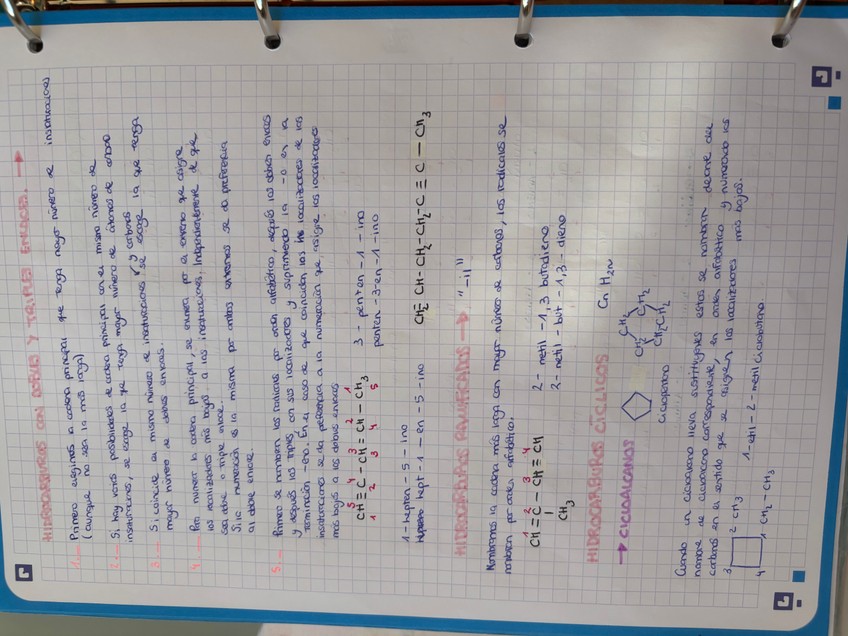 HIDROCARBUROS CON DOBLES Y TRIPLES ENLACES. →
1.— Primero elegimos la cadena principal que tenga mayor número de insaturaciones
(aunque no sea la más larga)
2.— Si hay varias posibilidades de cadena principal con el mismo número de
insaturaciones, se escoge la que tenga mayor número de átomos de carbono
3.— Si coincide el mismo número de insaturaciones y carbonos se escoge la que tenga
mayor número de dobles enlaces.
4.— Para numerar la cadena principal, se numera por el extremo que asigne
los localizadores más bajos a las insaturaciones. Independientemente de que
sea doble o triple enlace.
Si la numeración es la misma por ambos extremos se da preferencia
al doble enlace.
5.— Primero se nombran los radicales por orden alfabético, después los dobles enlaces
y después los triples, con sus localizadores y suprimiendo la -o en la
terminación -eno. En el caso de que coincidan los localizadores de las
insaturaciones se da preferencia a la numeración que asigne los localizadores
más bajos a los dobles enlaces
5 4 3 2 1
CH ≡ C - CH = CH - CH3
1 2 3 4 5
3 - penten - 1 - ino
penten - 3-en - 1 - ino
1 - hepten - 5 - ino
hept - 1 - en - 5 - ino
CH2= CH - CH2 - CH2 - C ≡ C - CH3
HIDROCARBUROS RAMIFICADOS → "-il"
Nombramos la cadena más larga con mayor número de carbonos, los radicales se
nombran por orden alfabético.
1 2 3 4
CH = C - CH = CH
CH3
2 - metil - 1,3 butadieno
2 - metil - but - 1,3 - dieno
HIDROCARBUROS CÍCLICOS
→ CICLOALCANOS Cn H2n
ciclopentano
CH2
CH2 CH2
CH2 CH2
Cuando un cicloalcano lleva sustituyentes estos se nombran delante del
nombre de cicloalcano correspondiente, en orden alfabético y numerando los
carbonos en el sentido que se asignen los localizadores más bajos.
3 2 CH3
4 1 CH2 - CH3
1-etil - 2 - metil ciclobutano